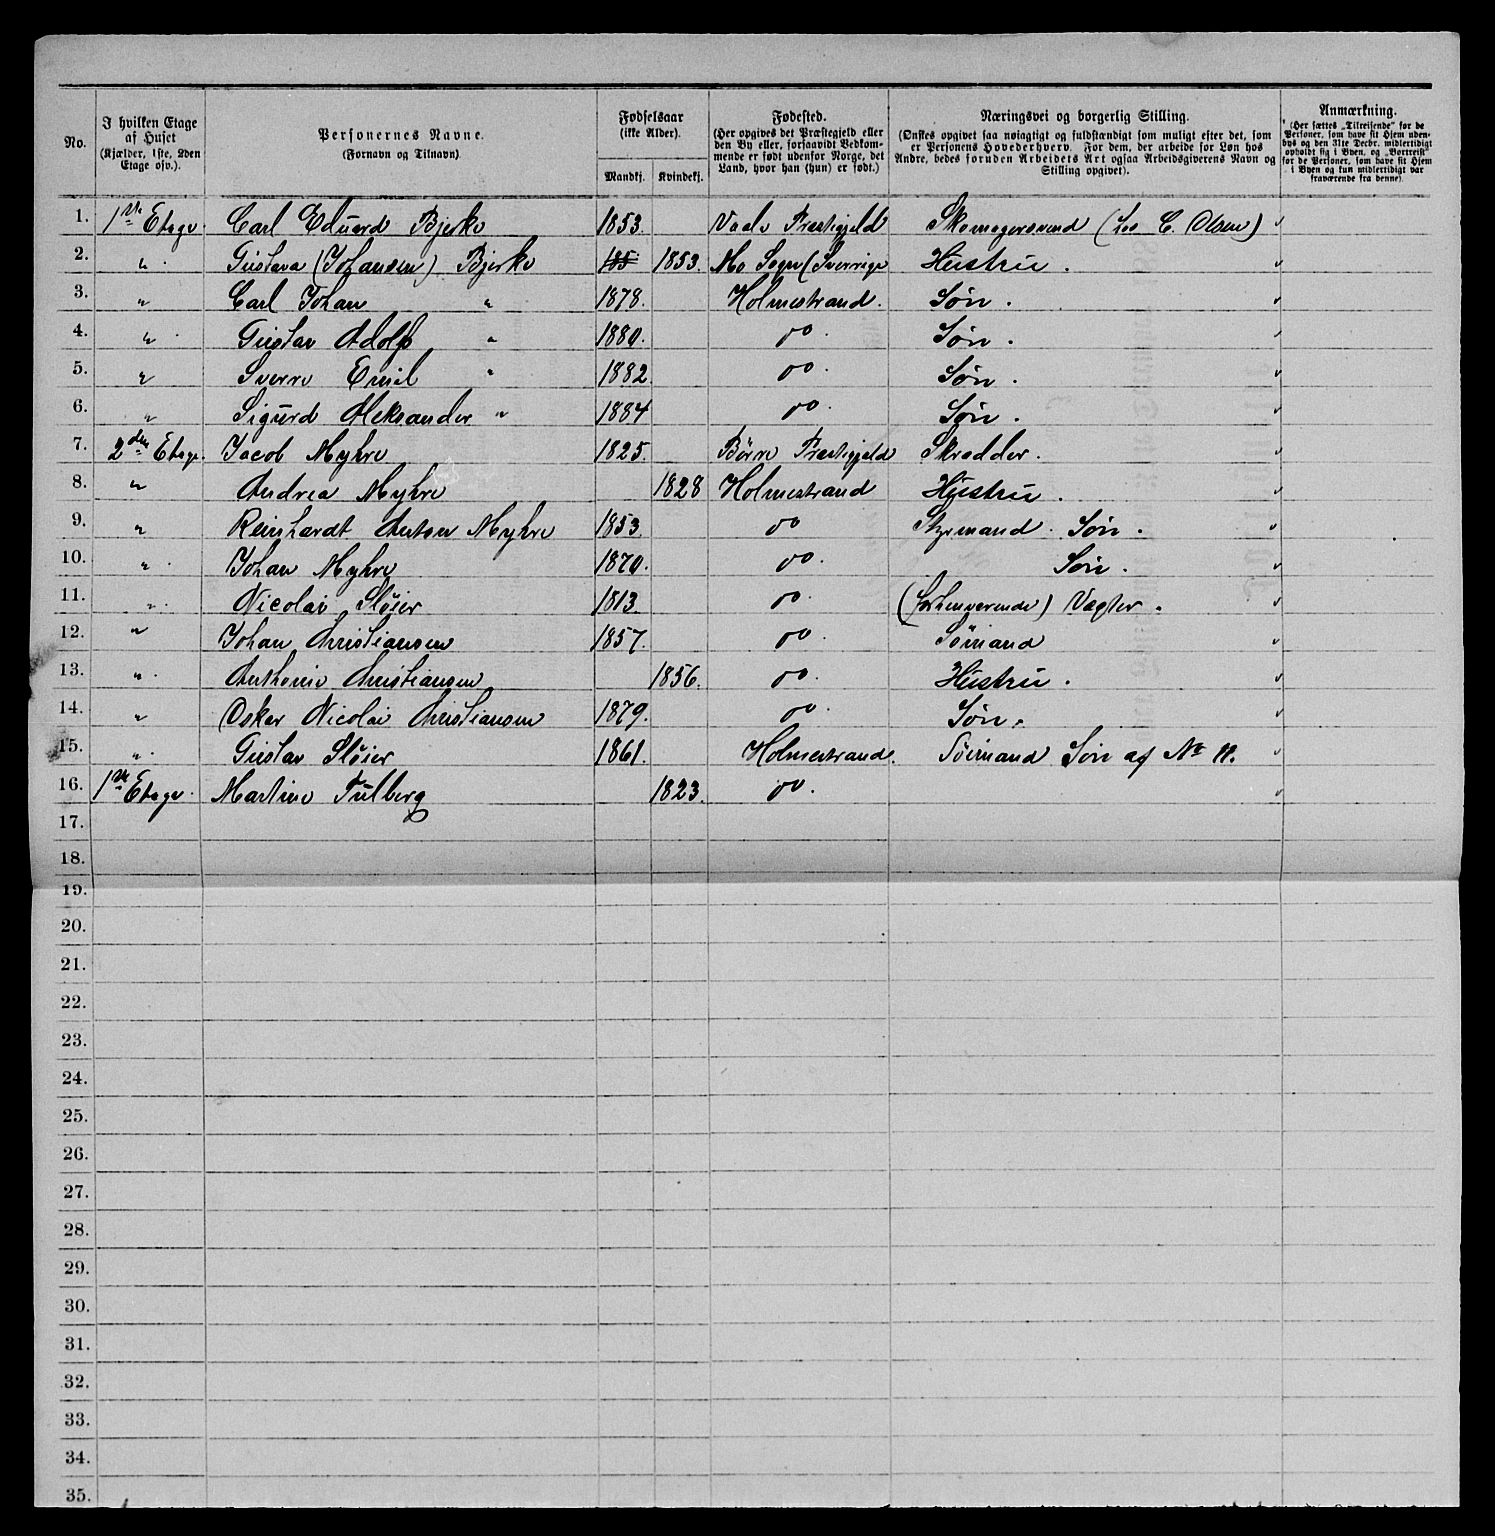 No. I hvilken Etage af Huset (Kjælder, 1ste, 2den Etage osv.). Personernes Navne. (Fornavn og Tilnavn) Fødselsaar (ikke Alder). Mandkj. Kvindekj. Fødested. (Her opgives det Præstegjeld eller den By eller, forsaavidt Vedkommende er født udenfor Norge, det Land, hvor han (hun) er født.) Næringsvei og borgerlig Stilling. (Ønskes opgivet saa nøiagtigt og fuldstændigt som muligt efter det, som er Personens Hovederhverv. For dem, der arbeide for Løn hos Andre, bedes foruden Arbeidets Art ogsaa Arbeidsgiverens Navn og Stilling opgivet). Anmærkning. (Her sættes „Tilreisende" for de Personer, som have sit Hjem udenbys og den 31te Decbr. midlertidigt opholdt sig i Byen, og „Bortreist" for de Personer, som have sit Hjem i Byen og kun midlertidigt var fraværende fra denne)
1. 1ste Etage Carl Eduard Bjerke 1853. Vaale Præstigjeld Skomagersvend (hos C. Olsen)
2. " Gustava (Johansen) Bjerke 185 1853. Mo Sogn (Sverrige Hustru.
3. " Carl Johan " 1878. Holmestrand. Søn.
4. " Gustav Adolf " 1880. do. Søn.
5. " Sverre Emil " 1882. do. Søn.
6. " Sigurd Aleksander " 1884 do. Søn.
7. 2den Etage. Jacob Myhre 1825. Børre Præstigjeld Skrædder.
8. " Andrea Myhre 1828 Holmestrand Hustru.
9. " Reinhardt Anton Myhre 1853. do Styrmand. Søn.
10. " Johan Myhre 1870. do. Søn.
11. " Nicolai Sløier 1813. do. (forhenværende) Vægter.
12. " Johan Christiansen 1857. do. Sømand
13. " Anthonie Christiansen 1856. do. Hustru.
14. " Oskar Nicolai Christiansen 1879. do. Søn.
15. " Gustav Sløier 1861. Holmestrand. Sømand Søn af No 11.
16. 1ste Etage. Martine Tulberg 1823. do.
17.
18.
19.
20.
21.
22.
23.
24.
25.
26.
27.
28.
29.
30.
31.
32.
33.
34.
35.